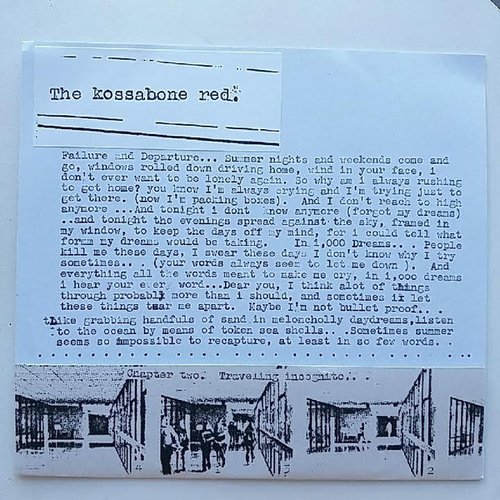 The kossabone red:
Failure and Departure... Summer nights and weekends come and
go, windows rolled down driving home, wind in your face, i
don't ever want to be lonely again. So why am i always rushing
to get home? you know I'm always crying and I'm trying just to
get there. (now I'm packing boxes). And I don't reach to high
anymore ...And tonight i dont know anymore (forgot my dreams)
..and tonight the evenings spread against the sky, framed in
my window, to keep the days off my mind, for i could tell what
form my dreams would be taking. In 1,000 Dreams.. . People
kill me these days, I swear these days I don't know why I try
sometimes... .(your words always seem to let me down ). And
everything all the words meant to make me cry, in 1,000 dreams
i hear your every word...Dear you, I think alot of things
through probably more than i should, and sometimes it let
these things tear me apart. Maybe I'm not bullet proof.. .
like grabbing handfuls of sand in meloncholly daydreams,listen
to the ocean by means of token sea shells.. .Sometimes summer
seems so impossible to recapture, at least in so few words.
Chapter two. Traveling incognito...